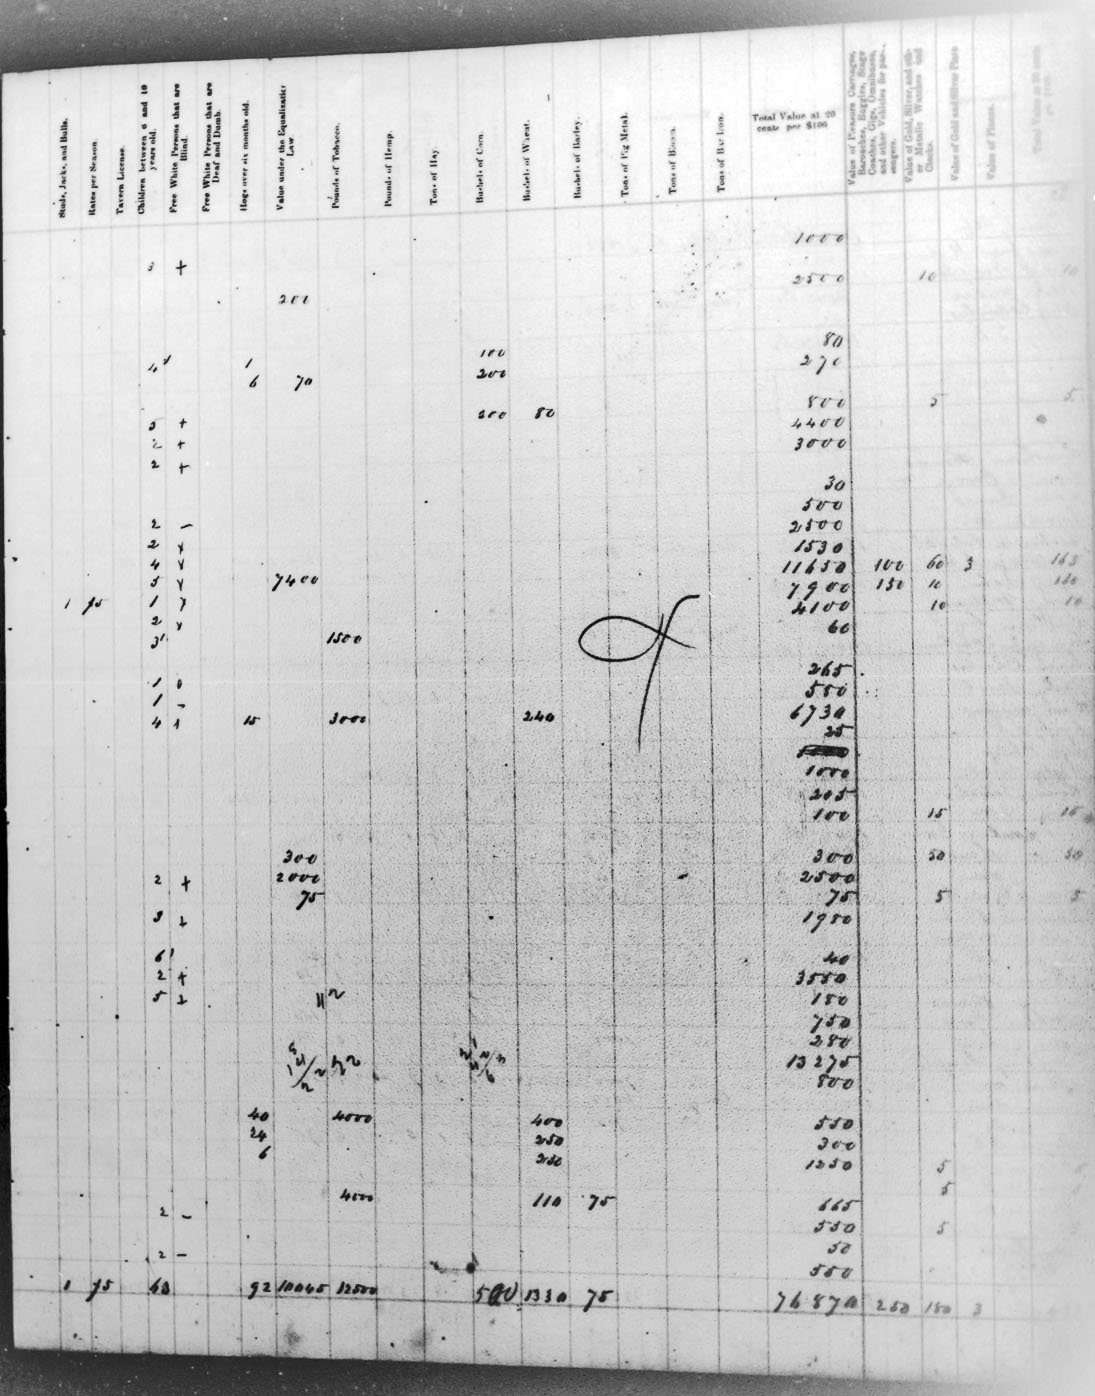 Studs, Jacks, and Bulls.
Rates per Season.
Tavern License.
Children between 6 and 18 years old.
Free White Persons that are Blind.
Free White Persons that are Deaf and Dumb.
Hogs over six months old.
Value under the Equalization Law
Pounds of Tobacco.
Pounds of Hemp.
Tons of Hay.
Bushels of Corn.
Bushels of Wheat.
Bushels of Barley.
Tons of Pig Metal.
Tons of Bloom.
Tons of Bar Iron.
Total Value at 20 cents per $100
Value of Pleasure Carriages, Barouches, Buggies, Stage Coaches, Gigs, Omnibuses, and other Vehicles for passengers.
Value of Gold, Silver, and other Metallic Watches and Clocks.
Value of Gold and Silver Plate
Value of Pianos.
1000
3 +
2500 10
200
80
4 1 100 270
6 70 200
800 5
200 80
5 + 4400
2 + 3000
2 +
30
500
2 - 2500
2 1530
4 11650 100 60 3 163
5 7400 7900 150 10 160
1 75 1 4100 10 10
2 60
3 1500
265
1 0 550
1 - 6730
4 1 15 3000 240
25
1000
205
100 15 15
300 300 50 50
2 + 2000 2500
75 75 5 5
3 1950
6 40
2 + 3550
5 150
750
280
13275
800
40 4000 400 550
24 250 300
6 250 1250 5
5
4000 110 75 665
2 - 550 5
50
2 -
550
1 75 63 92 10045 12500 500 1330 75 76870 250 180 3